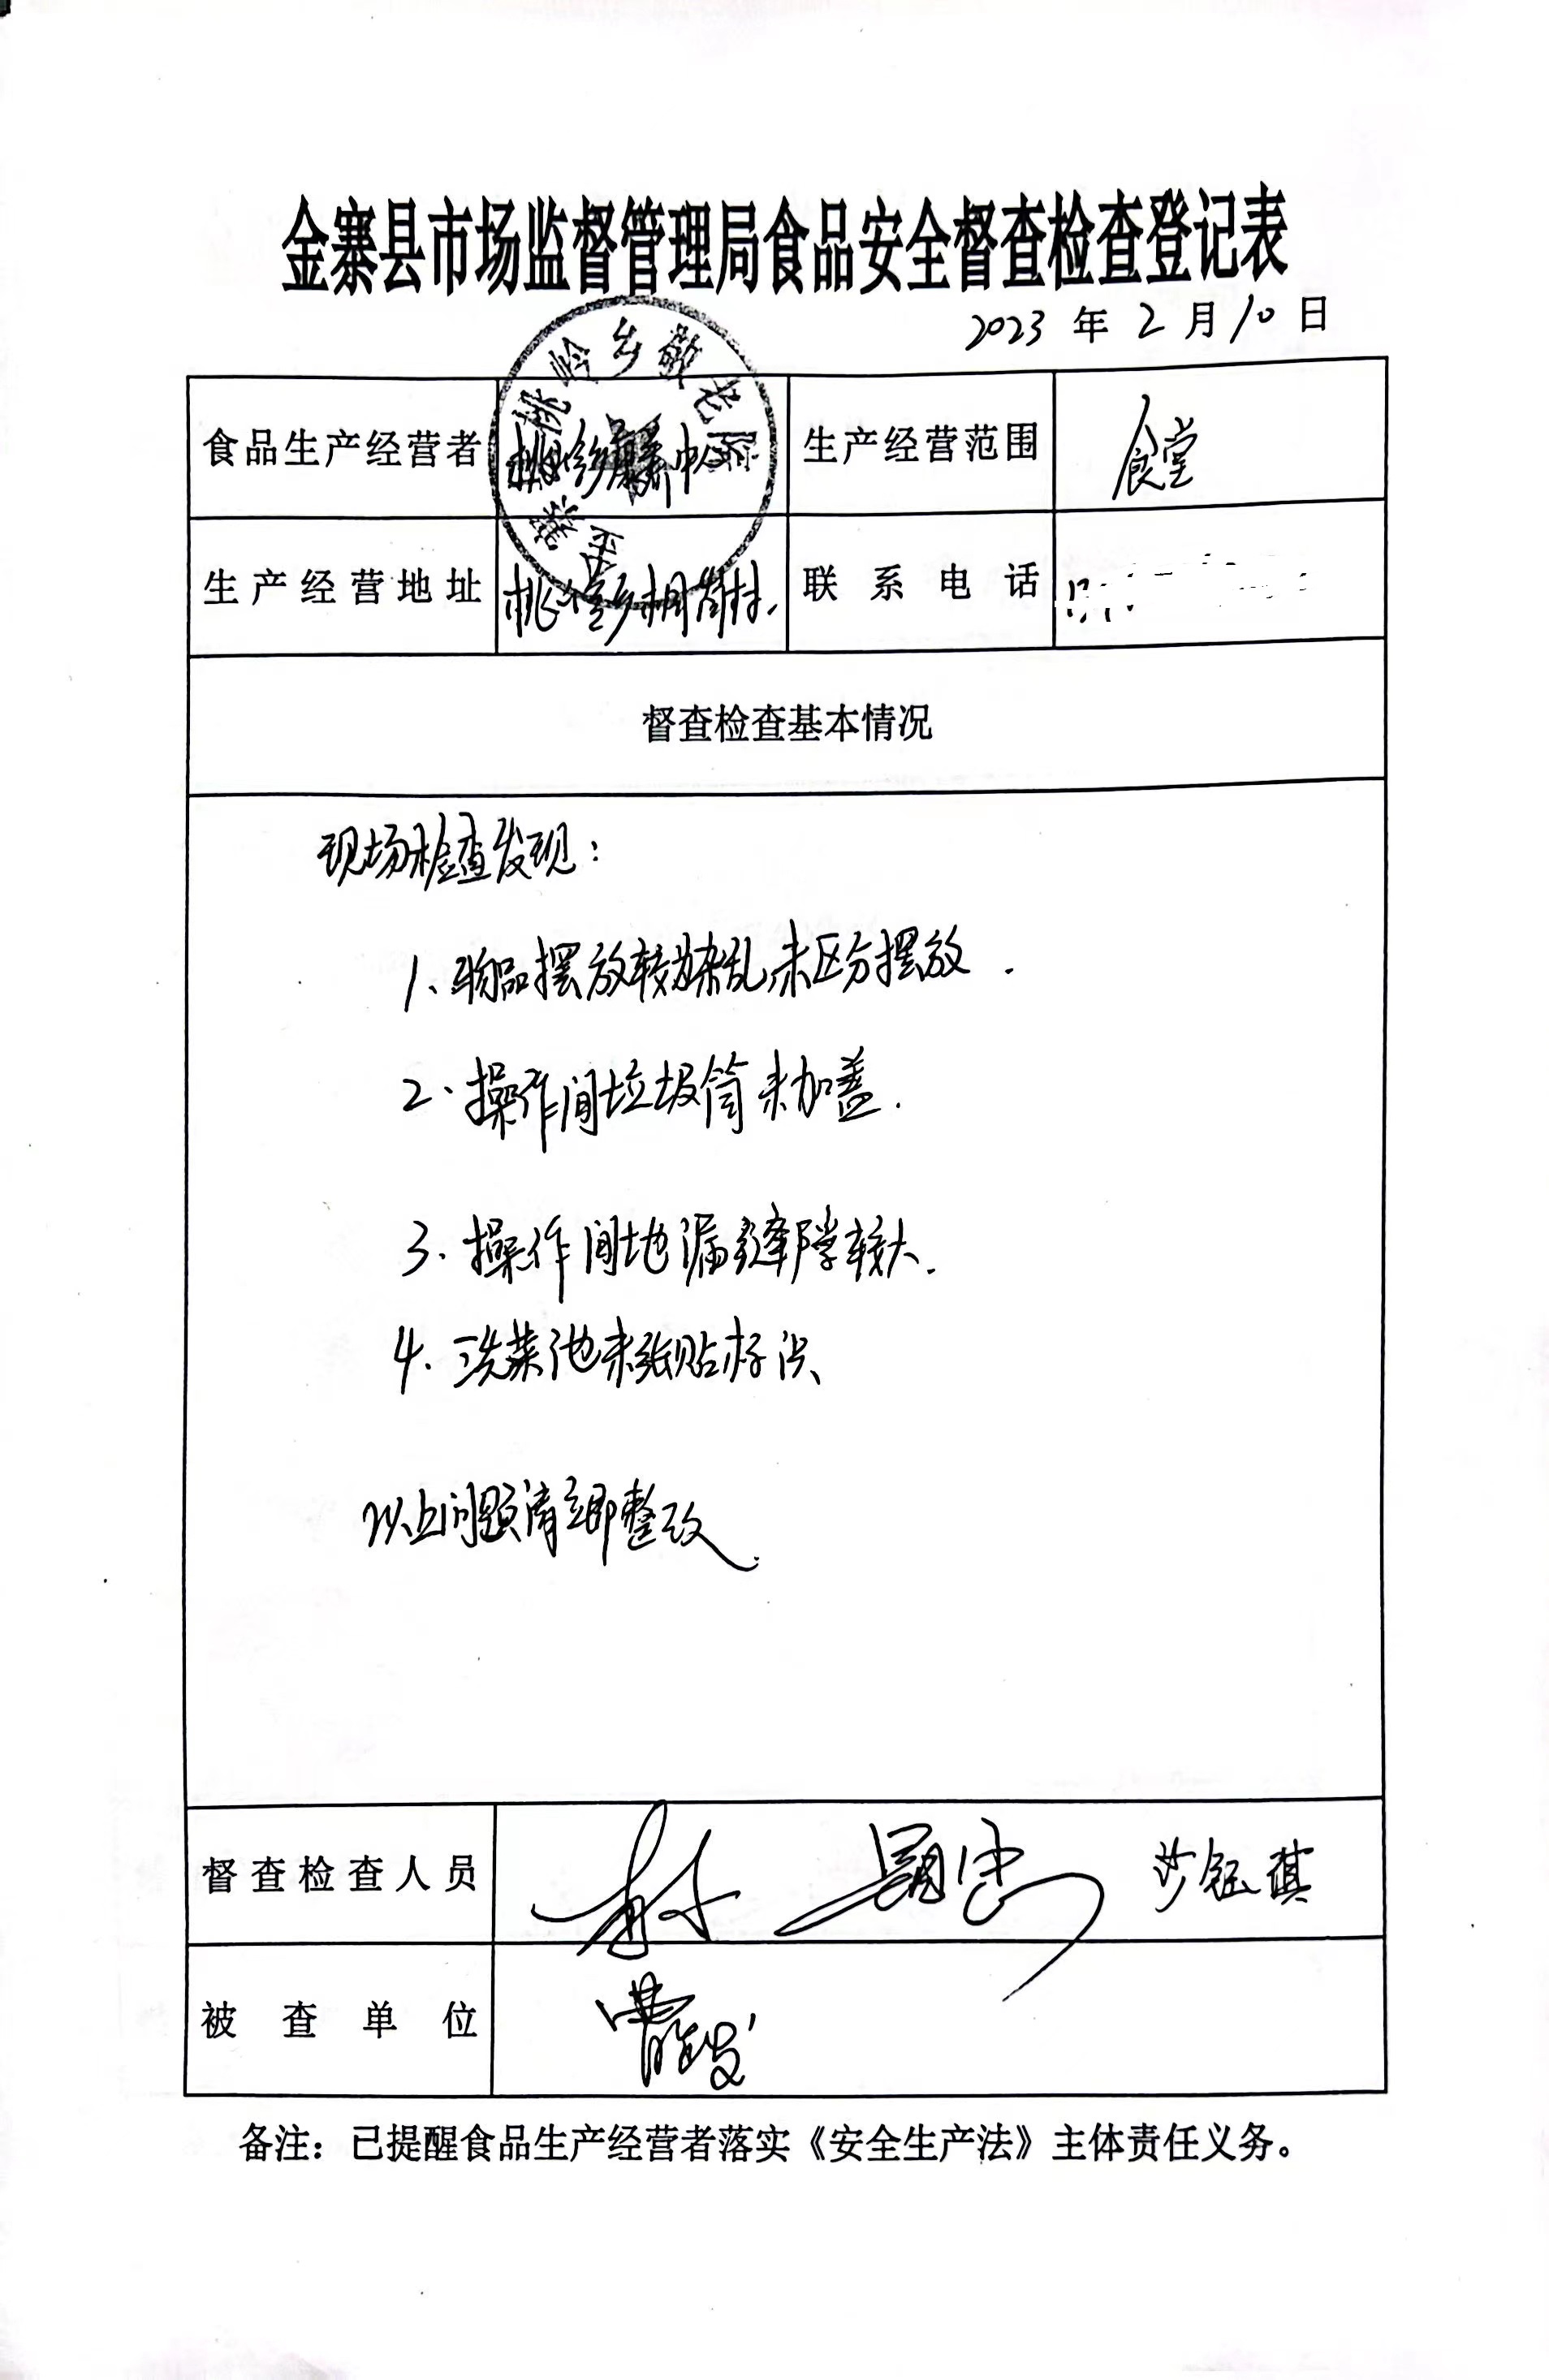 金寨县市场监督管理局食品安全督查检查登记表
2023 年 2 月 10 日
金寨县桃岭乡敬老院
食品生产经营者 桃岭乡 中心 生产经营范围 食堂
生产经营地址 桃岭乡桐岗村 联系电话
督查检查基本情况
现场检查发现:
1、物品摆放较为杂乱,未区分摆放.
2、操作间垃圾筒未加盖.
3.操作间地漏缝隙较大.
4.洗菜池未纸贴标识
以上问题请立即整改.
督查检查人员 沙钰琪
被查单位
备注:已提醒食品生产经营者落实《安全生产法》主体责任义务。